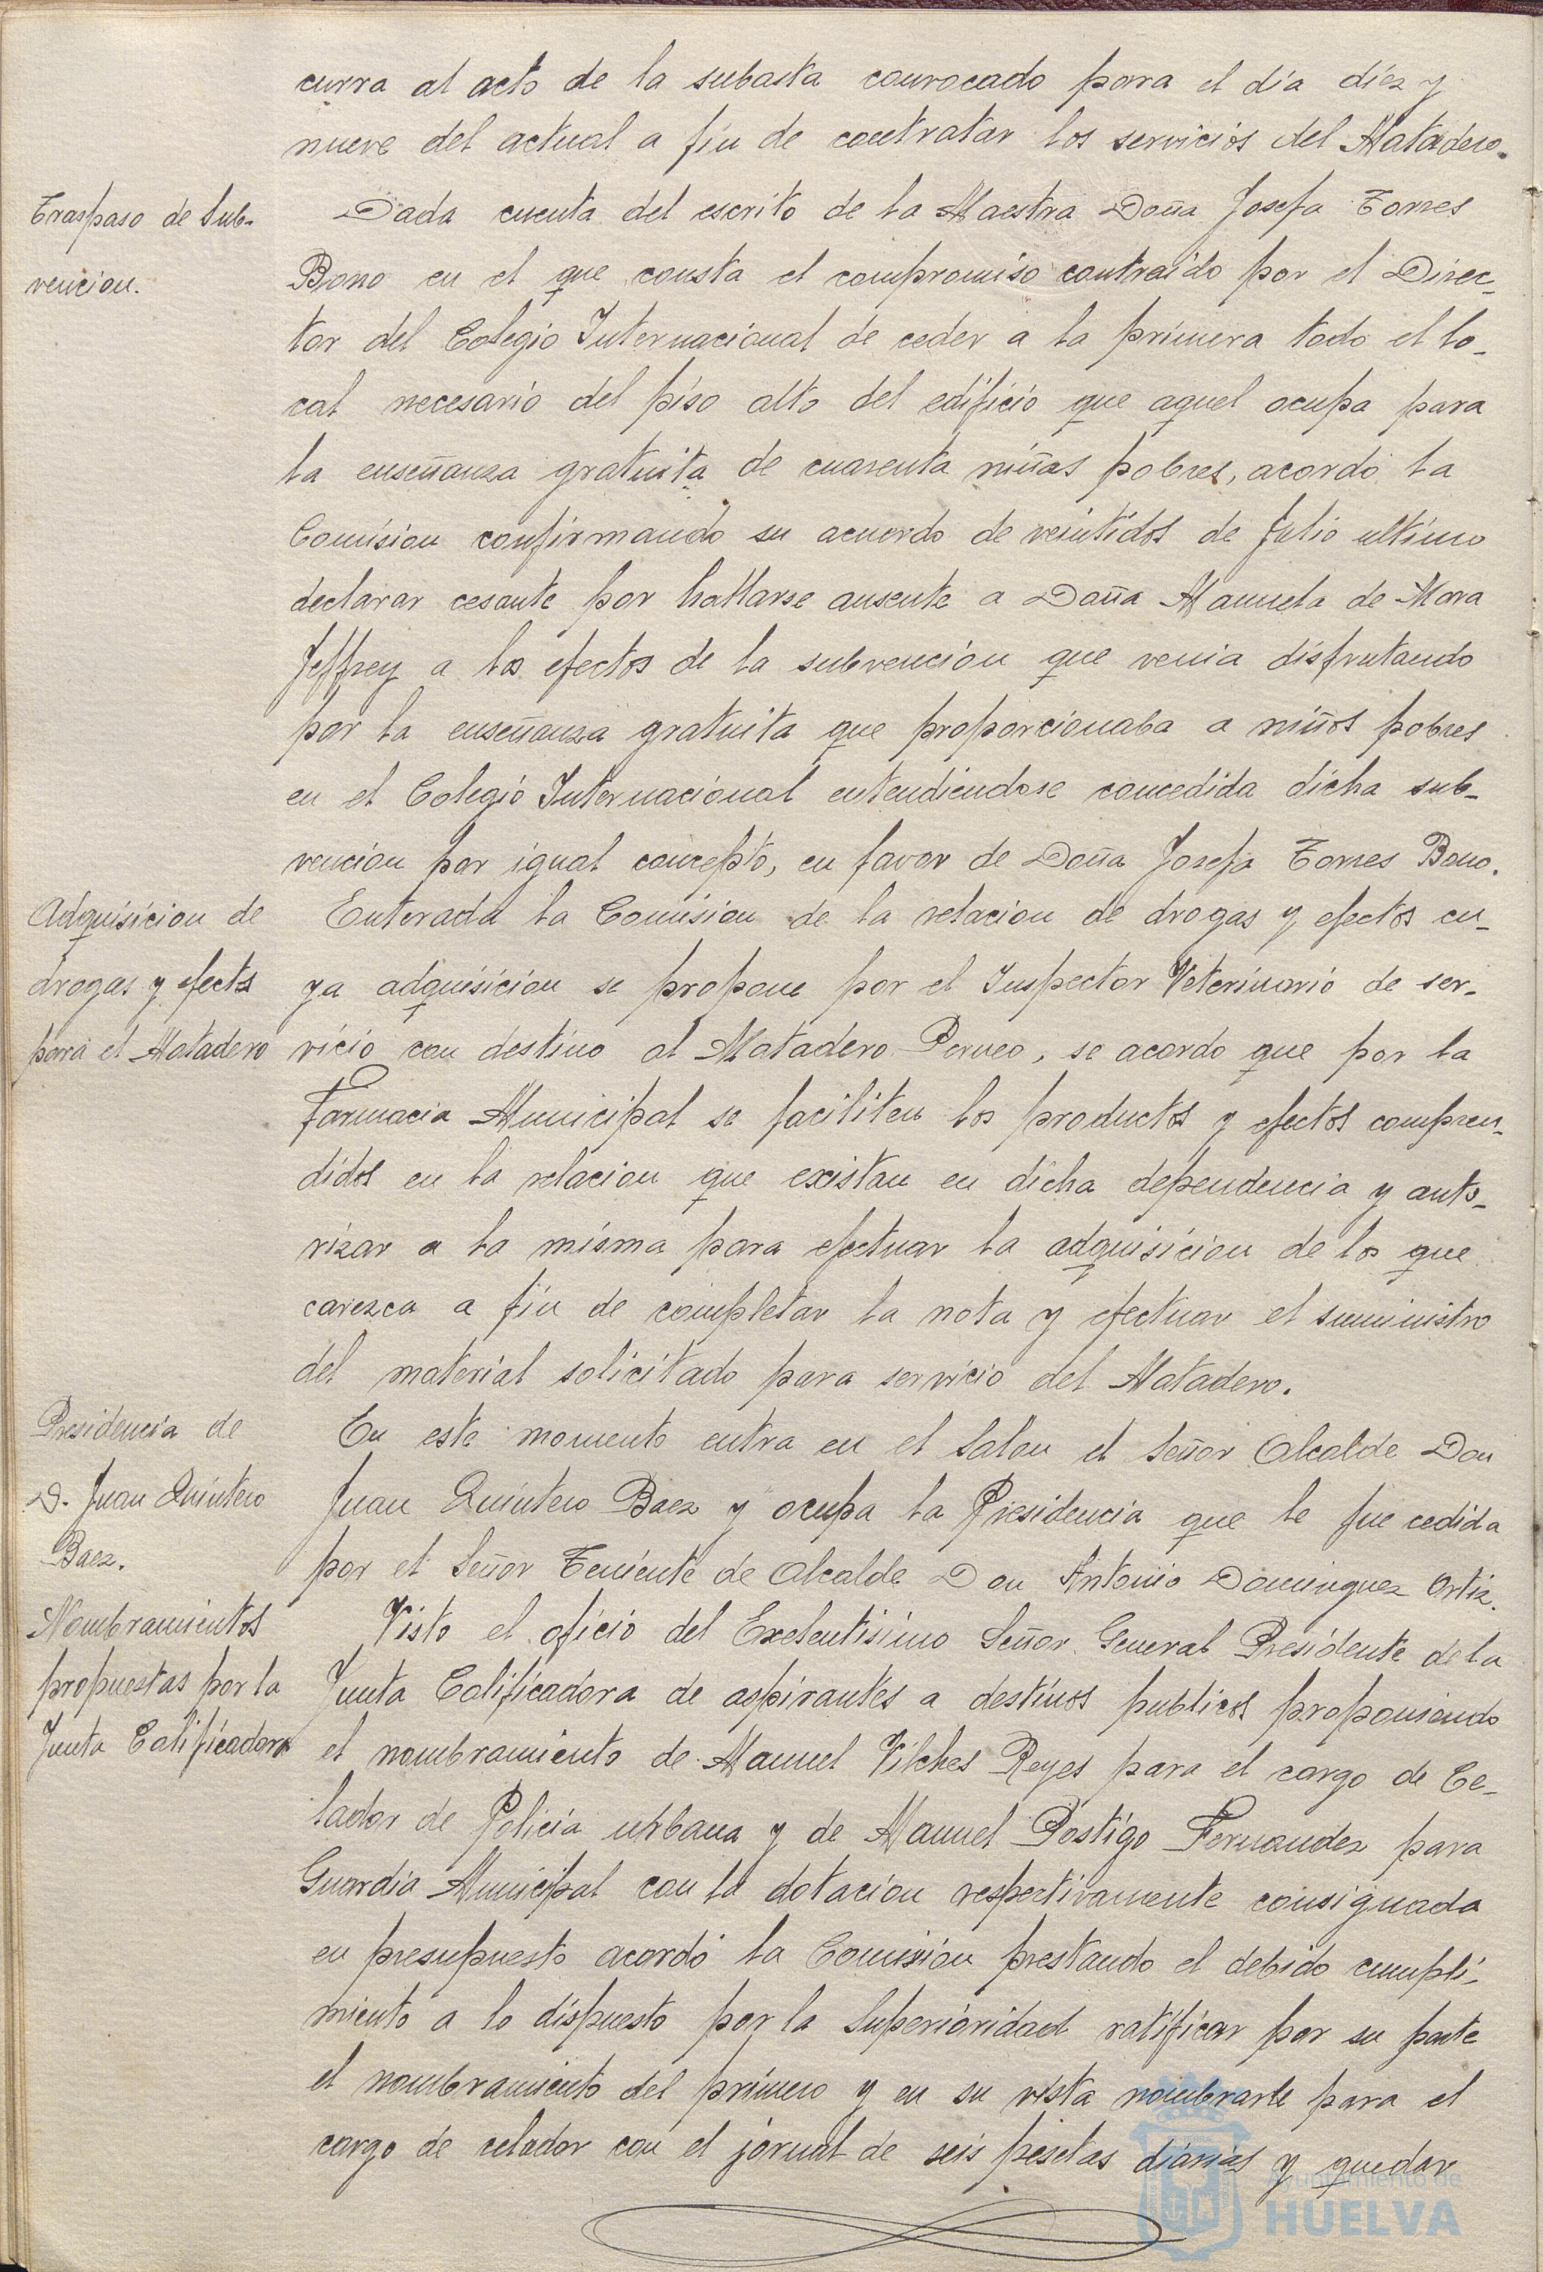 curra al acto de la subasta convocado para el día diez y
nueve del actual a fin de contratar los servicios del Matadero.
Traspaso de Sub-
vencion.
Dada cuenta del escrito de la Maestra Doña Josefa Torres
Bono en el que consta el compromiso contraido por el Direc-
tor del Colegio Internacional de ceder a la primera todo el lo-
cal necesario del piso alto del edificio que aquel ocupa para
la enseñanza gratuita de cuarenta niñas pobres, acordó la
Comision confirmando su acuerdo de veintidos de Julio ultimo
declarar cesante por hallarse ausente a Doña Manuela de Mora
Jeffrey a los efectos de la subvencion que venia disfrutando
por la enseñanza gratuita que proporcionaba a niños pobres
en el Colegio Internacional entendiendose concedida dicha sub-
vencion por igual concepto, en favor de Doña Josefa Torres Bono.
Adquisicion de
drogas y efectos
para el Matadero
Enterada la Comision de la relacion de drogas y efectos cu-
ya adquisicion se propone por el Inspector Veterinario de ser-
vicio con destino al Matadero Perneo, se acordo que por la
Farmacia Municipal se faciliten los productos y efectos compren-
didos en la relacion que existan en dicha dependencia y auto-
rizar a la misma para efectuar la adquisicion de los que
carezca a fin de completar la nota y efectuar el suministro
del material solicitado para servicio del Matadero.
Presidencia de
D. Juan Quintero
Baez.
En este momento entra en el Salon el Señor Alcalde Don
Juan Quintero Baez y ocupa la Presidencia que le fue cedida
por el Señor Teniente de Alcalde Don Antonio Dominguez Ortiz.
Nombramientos
propuestas por la
Junta Calificadora
Visto el oficio del Exelentisimo Señor General Presidente de la
Junta Calificadora de aspirantes a destinos publicos proponiendo
el nombramiento de Manuel Vilches Reyes para el cargo de Ce-
lador de Policia urbana y de Manuel Postigo Fernandez para
Guardia Municipal con la dotacion respectivamente consignada
en presupuesto acordó la Comision prestando el debido cumpli-
miento a lo dispuesto por la Superioridad ratificar por su parte
el nombramiento del primero y en su vista nombrarle para el
cargo de celador con el jornal de seis pesetas diarias y quedar
Ayuntamiento de
HUELVA